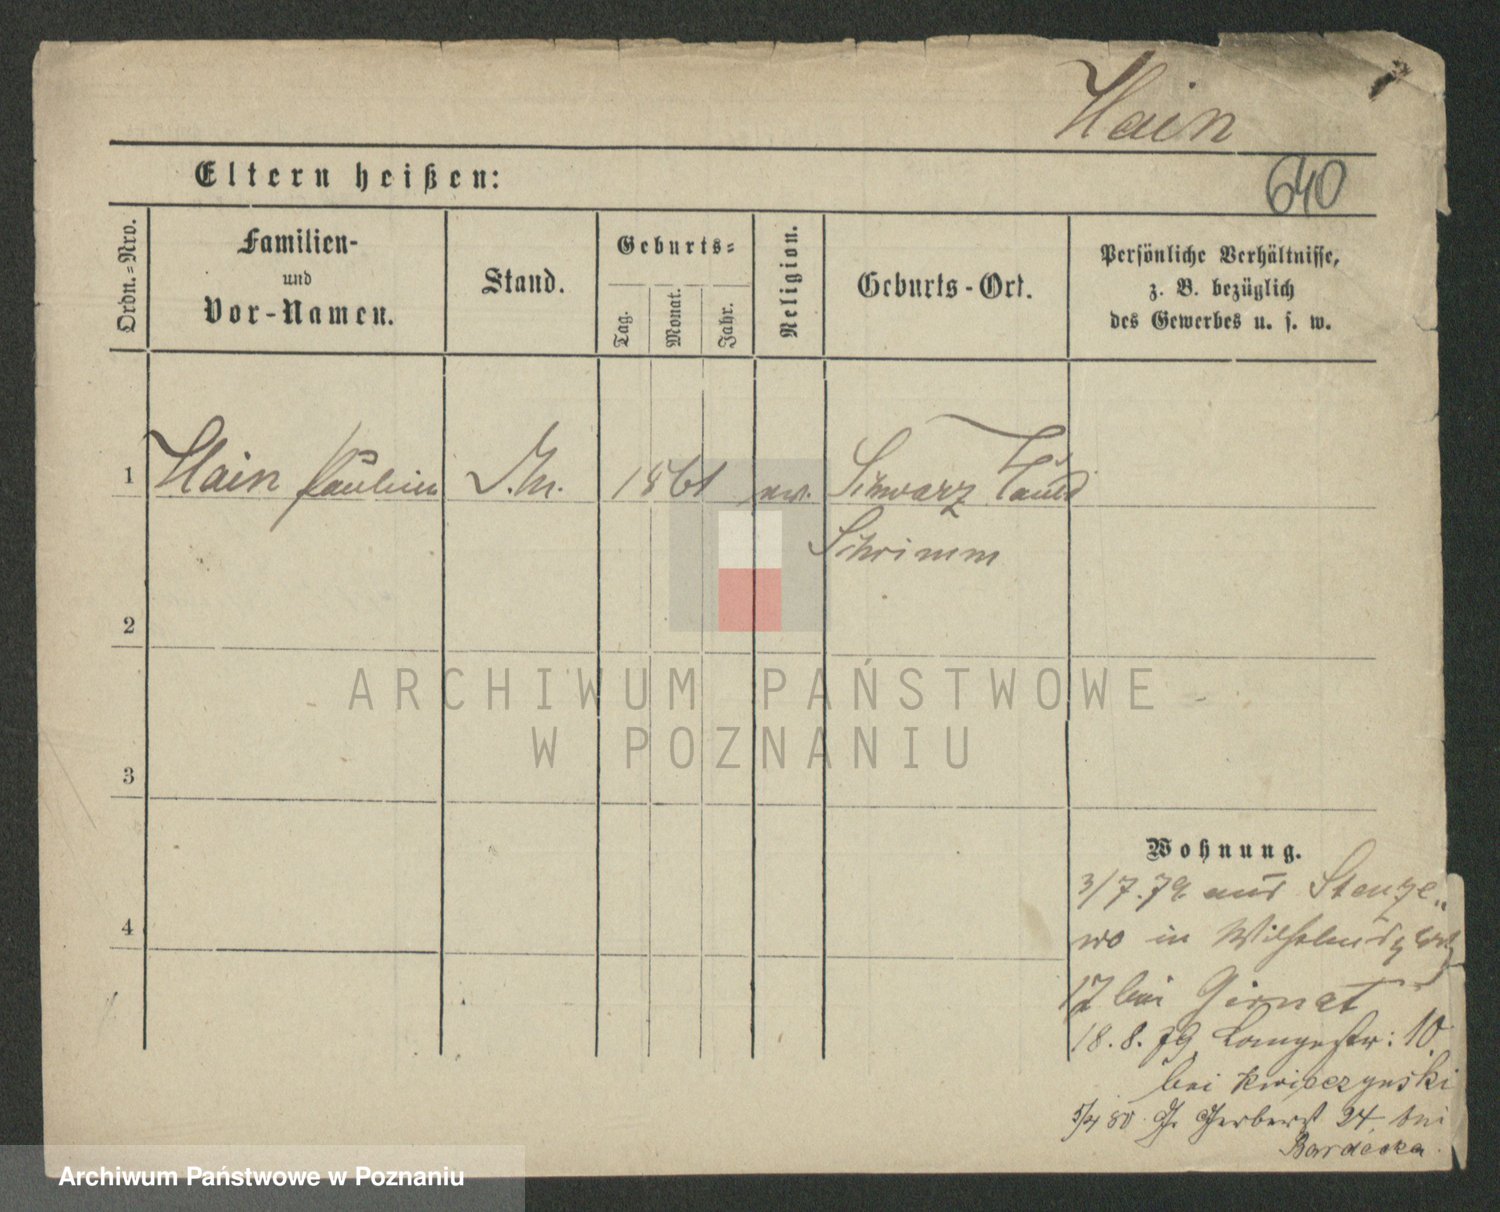 Hain
640
Eltern heißen:
Ordn.=Nro.
Familien-
und
Vor-Namen.
Stand.
Geburts=
Tag.
Monat.
Jahr.
Religion.
Geburts-Ort.
Persönliche Verhältnisse,
z. B. bezüglich
des Gewerbes u. s. w.
1 Hain Paulina 1861 ev. Schwarz
Schrimm
2
3
4
ARCHIWUM PAŃSTWOWE
W POZNANIU
Wohnung.
3/7.79 aus Stenze„
wo in
17 bei Girnat
18.8.79 Langestr: 10
bei
80. Gr. Gerberst 24 bei
Archiwum Państwowe w Poznaniu